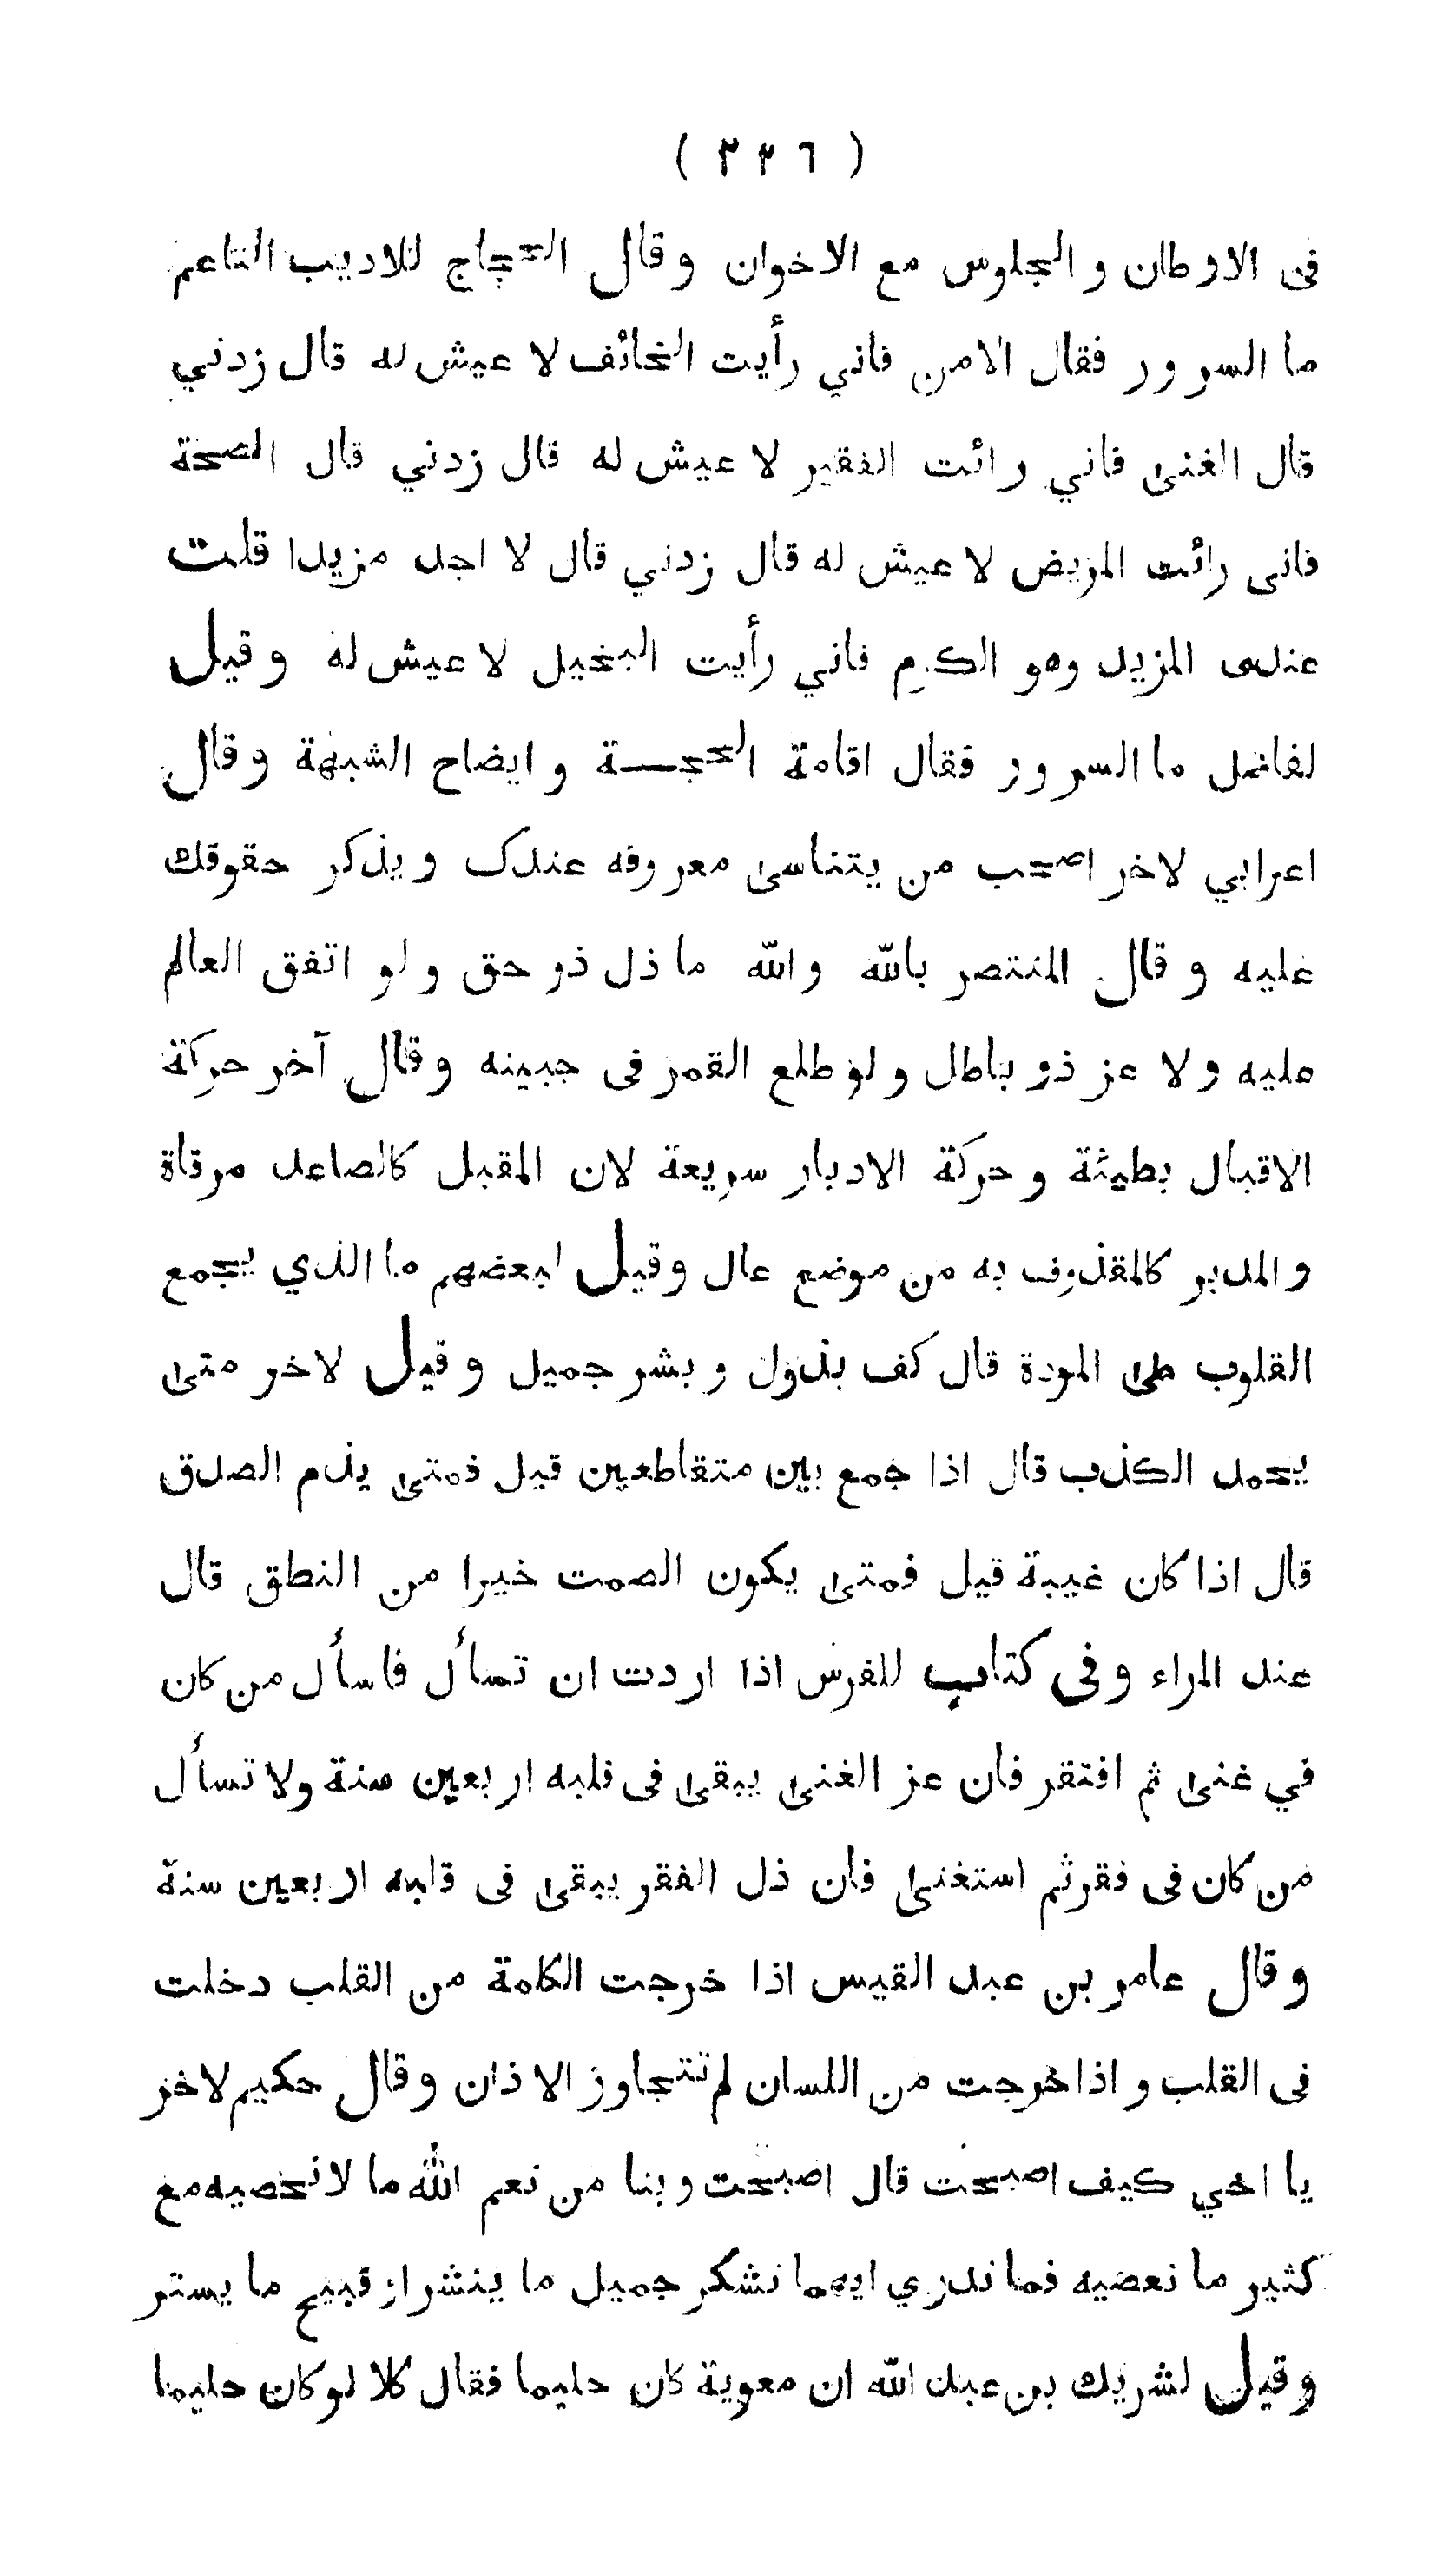 ( ٣٣٦ )
فى الاوطان والجلوس مع الاخوان وقال الحجاج للاديب الناعم
ما السرور فقال الامن فاني رأيت الخائف لا عيش له قال زدني
قال الغنى فاني رائت الفقير لا عيش له قال زدني قال الصحة
فانى رائت المريض لا عيش له قال زدني قال لا اجد مزيدا قلت
عندى المزيد وهو الكرم فاني رأيت البخيل لا عيش له وقيل
لفاضل ما السرور فقال اقامة الحجـــة وايضاح الشبهة وقال
اعرابي لاخر اصحب من يتناسى معروفه عندك ويذكر حقوقك
عليه وقال المنتصر بالله والله ما ذل ذو حق ولو اتفق العالم
عليه ولا عز ذو باطل ولو طلع القمر فى جبينه وقال آخر حركة
الاقبال بطيئة وحركة الادبار سريعة لان المقبل كالصاعد مرقاة
والمدبر كالمقذوف به من موضع عال وقيل لبعضهم ما الذي يجمع
القلوب على المودة قال كف بذول وبشر جميل وقيل لاخر متى
يحمد الكذب قال اذا جمع بين متقاطعين قيل فمتى يذم الصدق
قال اذا كان غيبة قيل فمتى يكون الصمت خيرا من النطق قال
عند المراء وفى كتاب للفرس اذا اردت ان تسأل فاسأل من كان
في غنى ثم افتقر فان عز الغنى يبقى فى قلبه اربعين سنة ولا تسأل
من كان فى فقر ثم استغنى فان ذل الفقر يبقى فى قلبه اربعين سنة
وقال عامر بن عبد القيس اذا خرجت الكلمة من القلب دخلت
فى القلب واذا خرجت من اللسان لم تتجاوز الاذان وقال حكيم لاخر
يا اخي كيف اصبحت قال اصبحت وبنا من نعم الله ما لا نحصيه مع
كثير ما نعصيه فما ندري ايهما نشكر جميل ما ينشر او قبيح ما يستر
وقيل لشريك بن عبد الله ان معوية كان حليما فقال كلا لو كان حليما